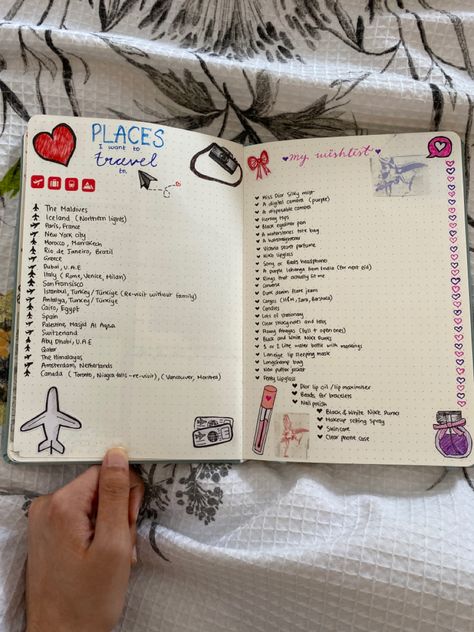 PLACES
I want to
travel
to
The Maldives
Iceland (Northern lights)
Paris, France
New York city
Morocco, Marrakech
Rio de Janeiro, Brazil
Greece
Dubai, U.A.E
Italy (Rome, Venice, Milan)
San Francisco
Istanbul, Turkey/Türkiye (Re-visit without family)
Antalya, Turkey/Türkiye
Cairo, Egypt
Spain
Palestine, Masjid Al Aqsa
Switzerland
Abu Dhabi, U.A.E
Qatar
The Himalayas
Amsterdam, Netherlands
Canada (Toronto, Niagra falls-re-visit), (Vancouver, Montreal)
my wishlist
Miss Dior Silky mist
A digital camera (purple)
A disposable camera
Earring
Black eyeliner pen
A waterstones tote bag
A
Victoria secret perfume
NARS lipgloss
Sony or Beats headphones
A purple lehenga from India (for next eid)
Rings that actually fit me
Converse
Dark denim flare jeans
Cargos (H&M, Zara, Bershka)
Candles
Lots of stationary
Clear sticky notes and tabs
(full + open ones)
Black and white Nike Dunks
1 or 2 Litre water bottle with markings
Laneige lip sleeping mask
Longchamp bag
powder
Fenty lipgloss
Dior lip oil / lip maximiser
Beads for bracelets
Nail polish
Black & White Nike Dunks
Makeup setting spray
Skincare
Clear phone case